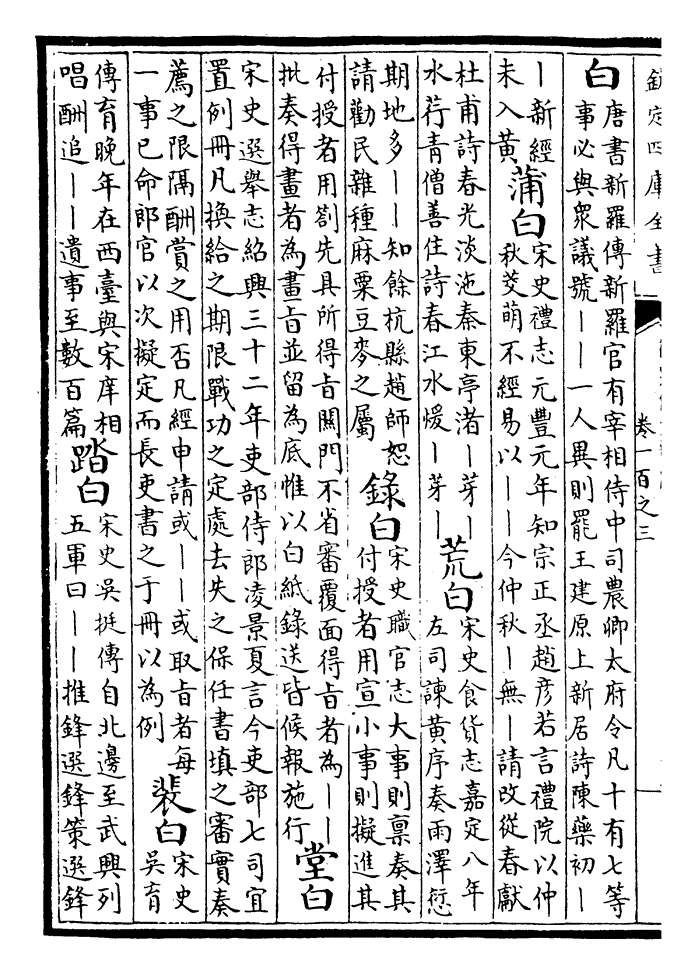 欽定四庫全書
卷一百之三
白
唐書新羅傳新羅官有宰相侍中司農卿太府令凡十有七等
事必與衆議號——一人異則罷王建原上新居詩陳藥初—
—新經
未入黃
蒲白
宋史禮志元豐元年知宗正丞趙彦若言禮院以仲
秋芰萌不經易以——今仲秋—無—請改從春獻
杜甫詩春光淡沲秦東亭渚—芽—
水荇青僧善住詩春江水煖—芽—
荒白
宋史食貨志嘉定八年
左司諫黃序奏雨澤愆
期地多——知餘杭縣趙師恕
請勸民雜種麻粟豆麥之屬
錄白
宋史職官志大事則禀奏其
付授者用宣小事則擬進其
付授者用劄先具所得旨關門不省審覆面得旨者為——
批奏得畫者為畫旨並留為底惟以白紙錄送皆候報施行
堂白
宋史選舉志紹興三十二年吏部侍郎凌景夏言今吏部七司宜
置例冊凡換給之期限戰功之定處去失之保任書填之審實奏
薦之限隔酬賞之用否凡經申請或——或取旨者每
一事已命郎官以次擬定而長吏書之于冊以為例
裴白
宋史
吳育
傳育晚年在西臺與宋庠相
唱酬追——遺事至數百篇
踏白
宋史吳挺傳自北邊至武興列
五軍曰——推鋒選鋒策選鋒